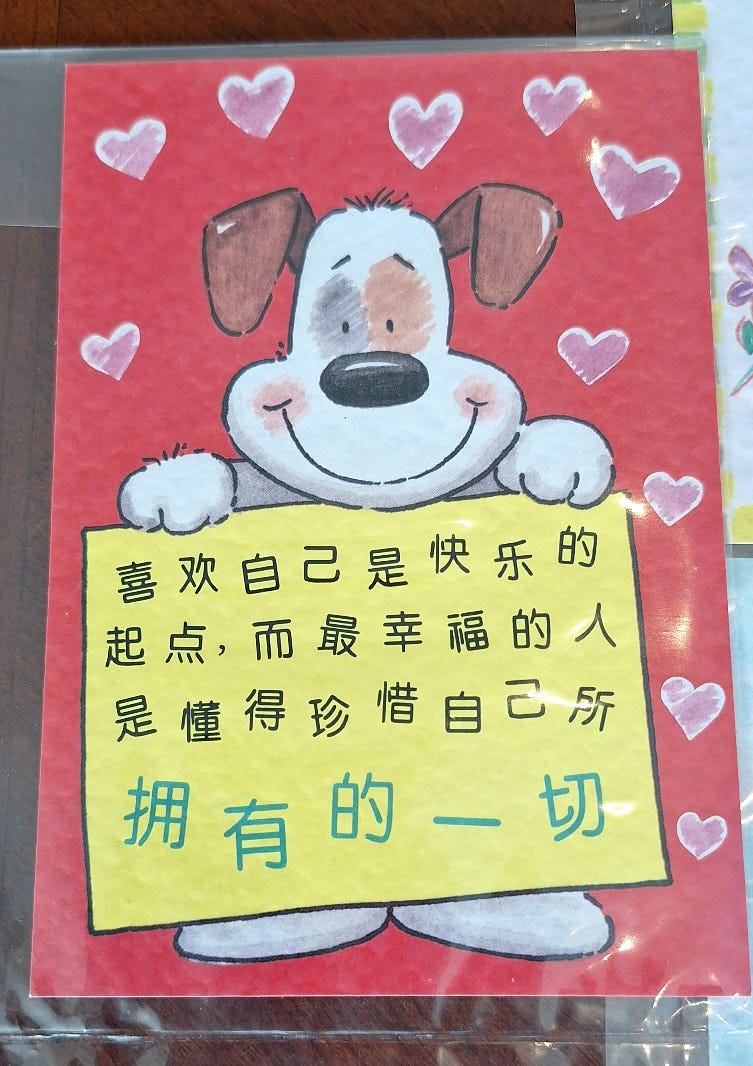 喜欢自己是快乐的
起点,而最幸福的人
是懂得珍惜自己所
拥有的一切